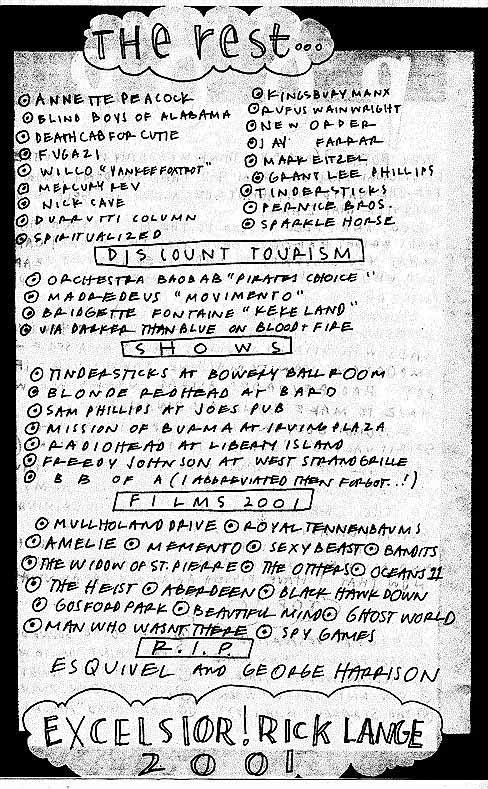 THE rest...
ANNETTE PEACOCK
BLIND BOYS OF ALABAMA
DEATH CAB FOR CUTIE
FUGAZI
WILLO "YANKEEFOXTROT"
MERCURY REV
NICK CAVE
DURRUTTI COLUMN
SPIRITUALIZED
KINGSBURY MANX
RUFUS WAINWRIGHT
NEW ORDER
JAY FARRAR
MARK EITZEL
GRANT LEE PHILLIPS
TINDERSTICKS
PERNICE BROS.
SPARKLE HORSE
DISCOUNT TOURISM
ORCHESTRA BAOBAB "PIRATES CHOICE"
MADREDEUS "MOVIMENTO"
BRIDGETTE FONTAINE "KEKELAND"
VIA DARKER THAN BLUE ON BLOOD + FIRE
SHOWS
TINDERSTICKS AT BOWERY BALLROOM
BLONDE REDHEAD AT BARD
SAM PHILLIPS AT JOES PUB
MISSION OF BURMA AT IRVING PLAZA
RADIOHEAD AT LIBERTY ISLAND
FREEDY JOHNSON AT WEST STRAND GRILLE
B B OF A (I ABBREVIATED THEN FORGOT..!)
FILMS 2001
MULLHOLAND DRIVE ROYAL TENNENBAUMS
AMELIE MEMENTO SEXY BEAST BANDITS
THE WIDOW OF ST. PIERRE THE OTHERS OCEANS 11
THE HEIST ABERDEEN BLACK HAWK DOWN
GOSFORD PARK BEAUTIFUL MIND GHOST WORLD
MAN WHO WASNT THERE SPY GAMES
R.I.P.
ESQUIVEL AND GEORGE HARRISON
EXCELSIOR! RICK LANGE
2001